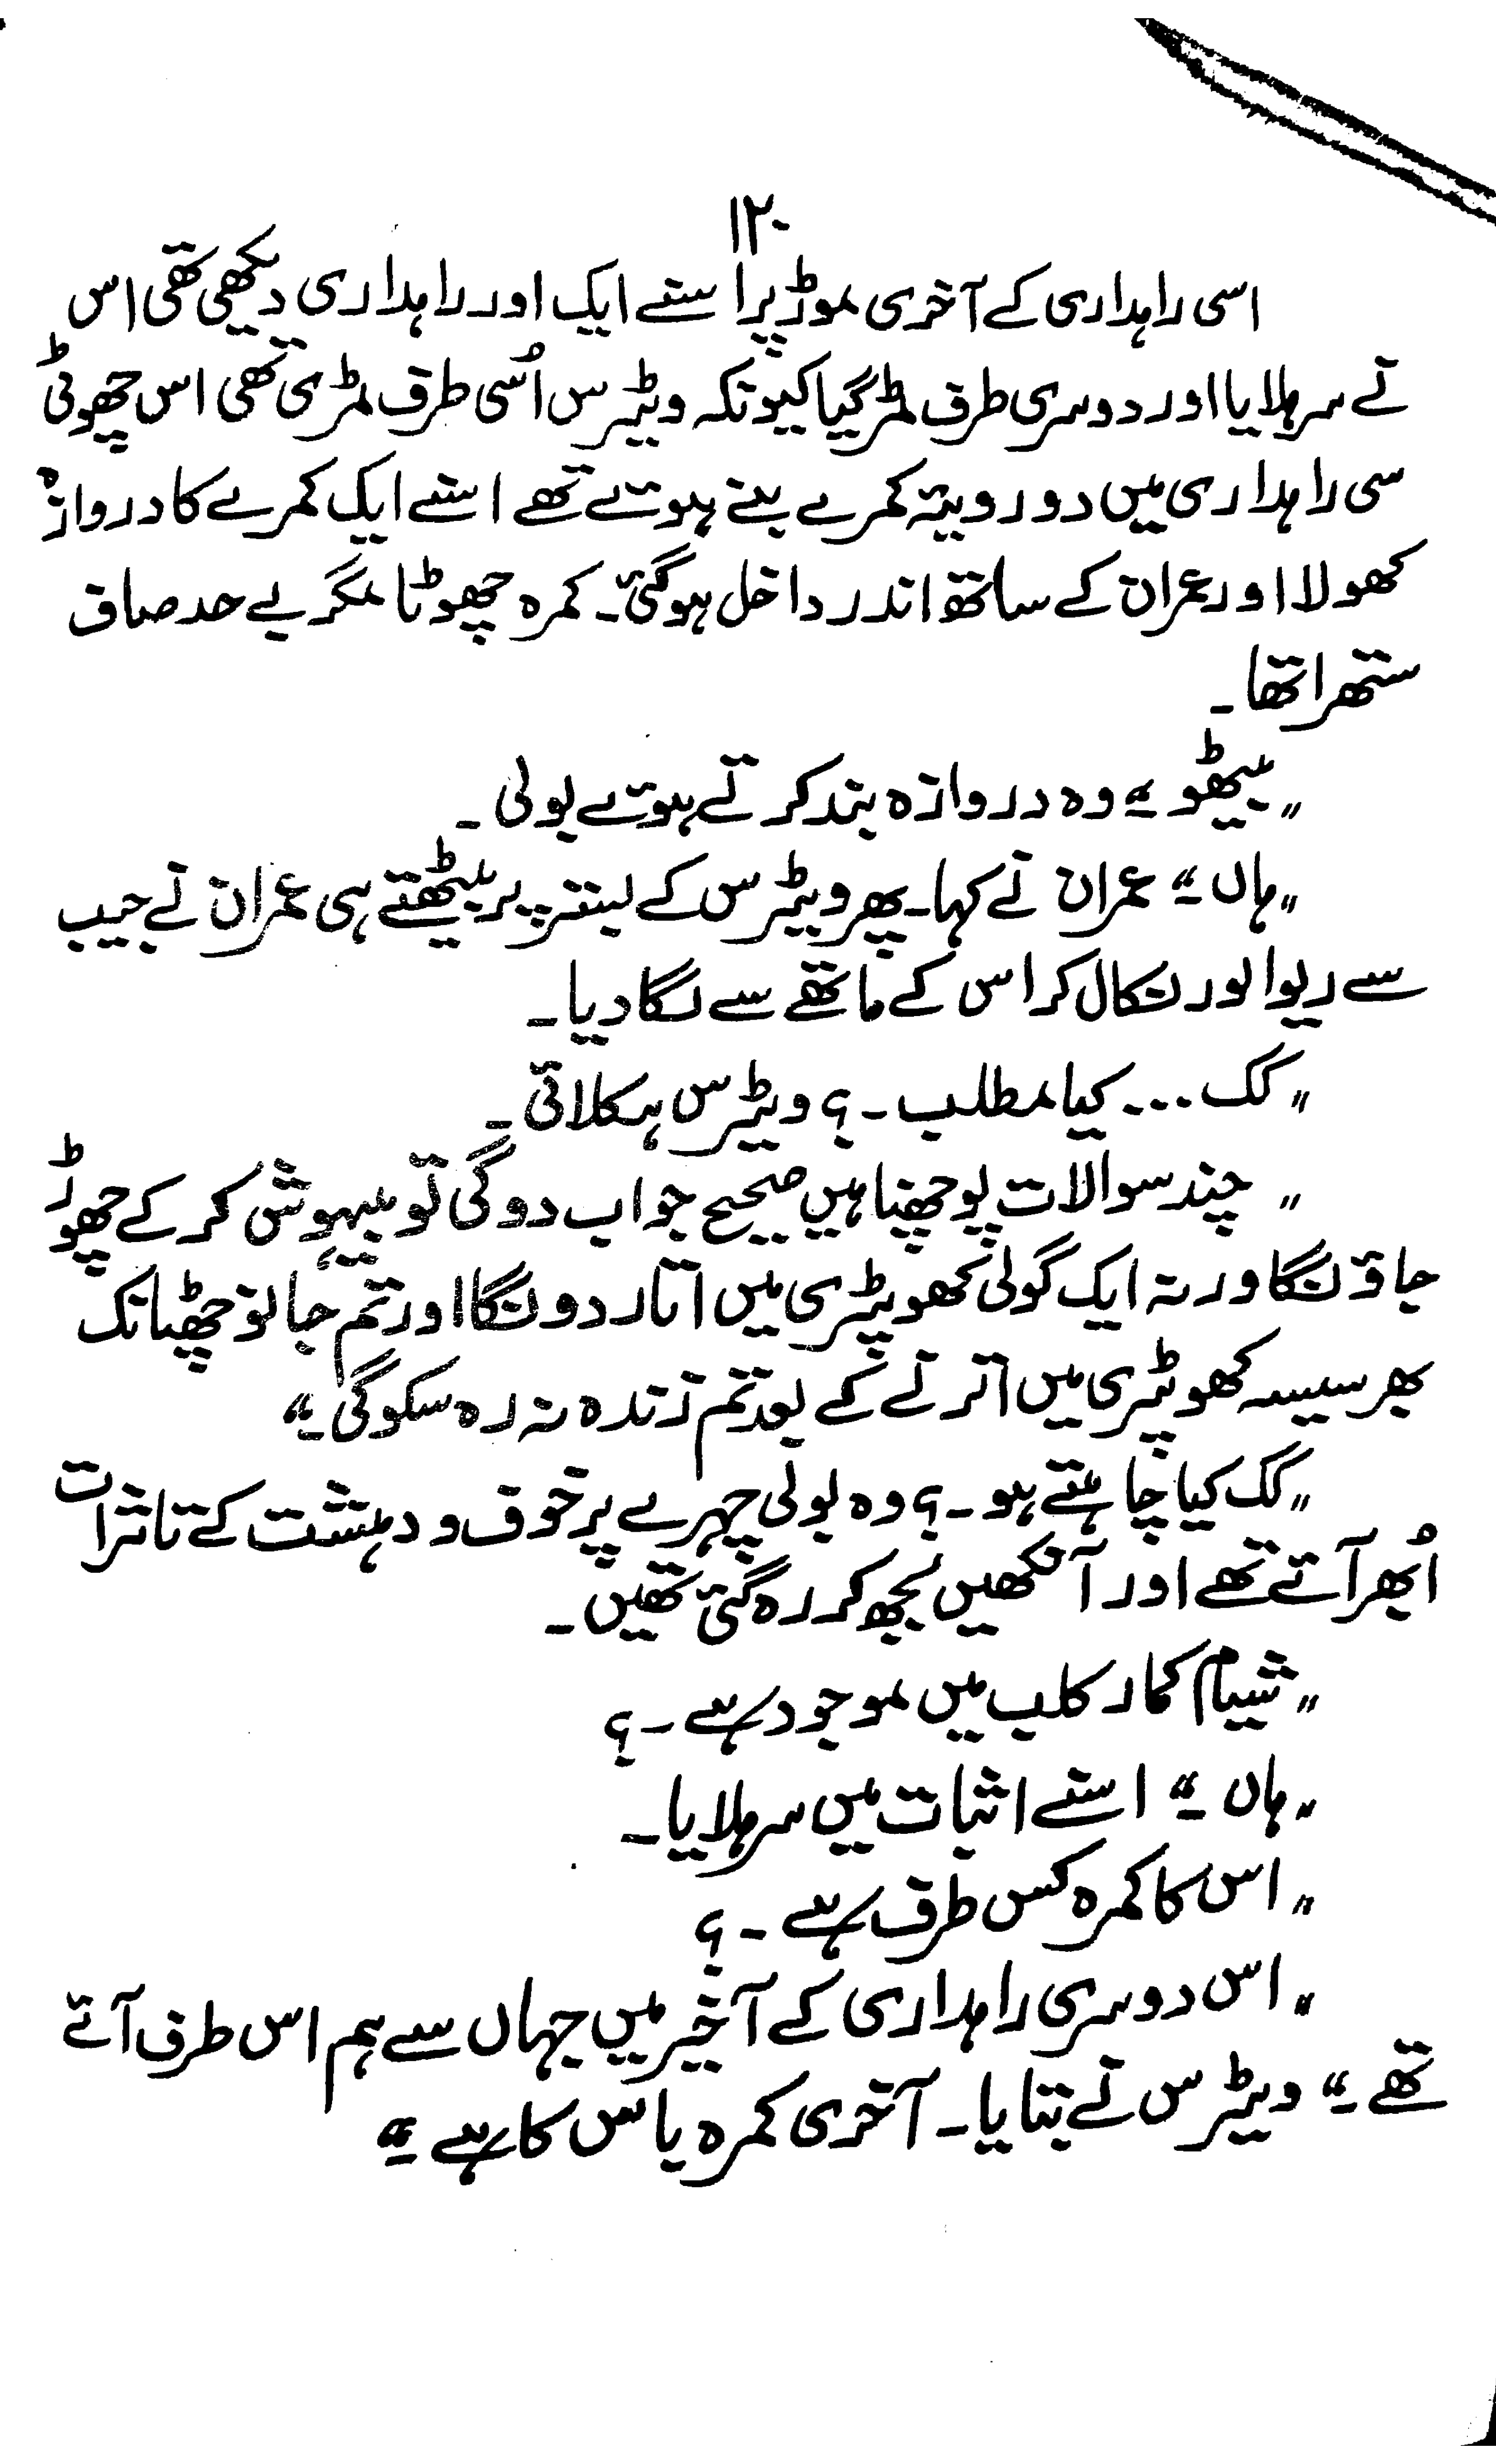 ۱۲۰
اسی راہداری کے آخری موڑ پر اسنے ایک اور راہداری دیکھی تھی اس
نے سر ہلایا اور دوسری طرف مڑ گیا کیونکہ ویٹرس اُسی طرف مڑی تھی اس چھوٹی
سی راہداری میں دو رویہ کمرے بنے ہوئے تھے اسنے ایک کمرے کا دروازہ
کھولا اور عمران کے ساتھ اندر داخل ہو گئی۔ کمرہ چھوٹا مگر بے حد صاف
ستھرا تھا۔
"بیٹھو" وہ دروازہ بند کرتے ہوئے بولی۔
"ہاں" عمران نے کہا۔ پھر ویٹرس کے بستر پر بیٹھتے ہی عمران نے جیب
سے ریوالور نکال کر اس کے ماتھے سے لگا دیا۔
"کک... کیا مطلب۔؟ ویٹرس ہکلائی۔
"چند سوالات پوچھنا ہیں صحیح جواب دو گی تو بیہوش کر کے چھوڑ
جاؤنگا ورنہ ایک گولی کھوپڑی میں اتار دونگا اور تم جانو چھٹانک
بھر سیسہ کھوپڑی میں اترنے کے بعد تم زندہ نہ رہ سکو گی"
"کک کیا چاہتے ہو۔؟ وہ بولی چہرے پر خوف و دہشت کے تاثرات
اُبھر آئے تھے اور آنکھیں بجھ کر رہ گئی تھیں۔
"شیام کمار کلب میں موجود ہے۔؟
"ہاں" اسنے اثبات میں سر ہلایا۔
"اس کا کمرہ کس طرف ہے۔؟
"اس دوسری راہداری کے آخیر میں جہاں سے ہم اس طرف آئے
تھے" ویٹرس نے بتایا۔ آخری کمرہ باس کا ہے"